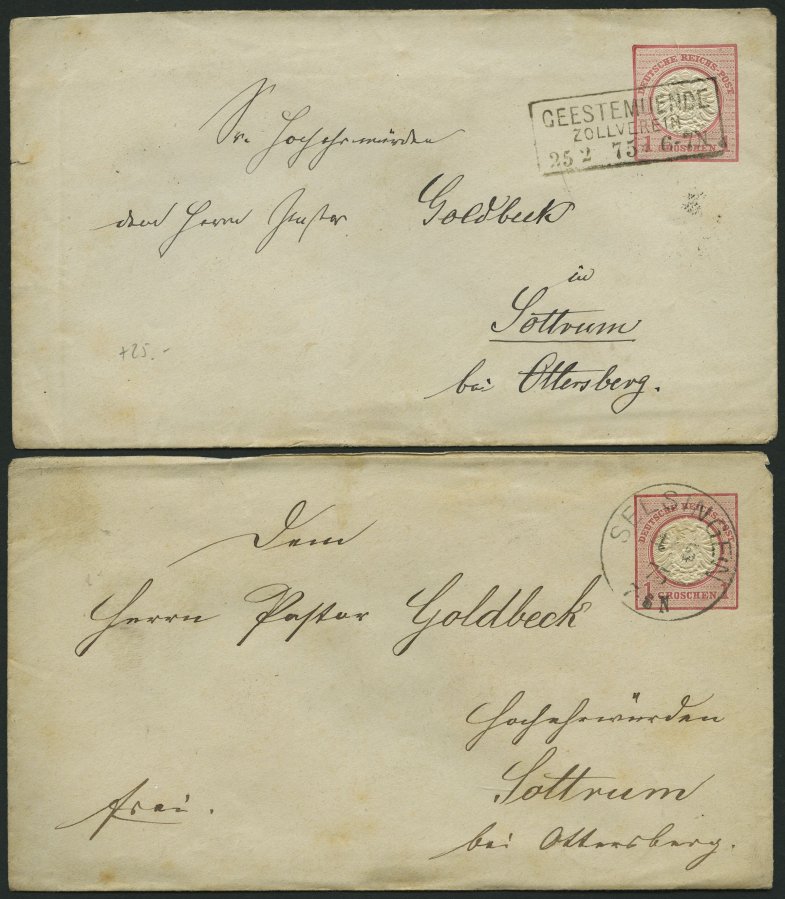 DEUTSCHE REICHS-POST
1 GROSCHEN 1
GEESTEMUENDE
ZOLLVEREIN
25 2 75 6-7N
Sr. Hochehrwürden
dem Herrn Pastor Goldbeck
in
Sottrum
bei Ottersberg.
+25.-
DEUTSCHE REICHS-POST
1 GROSCHEN
SELSINGEN
Dem
Herrn Pastor Goldbeck
Hochehrwürden
Sottrum
bei Ottersberg.
frei.